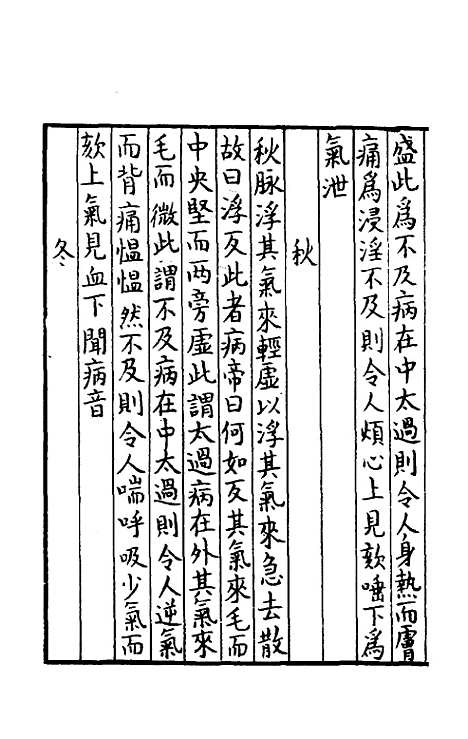 盛此爲不及病在中太過則令人身熱而膚
痛爲浸淫不及則令人煩心上見欬唾下爲
氣泄
秋
秋脉浮其氣來輕虛以浮其氣來急去散
故曰浮反此者病帝曰何如反其氣來毛而
中央堅而两旁虛此謂太過病在外其氣來
毛而微此謂不及病在中太過則令人逆氣
而背痛愠愠然不及則令人喘呼吸少氣而
欬上氣見血下聞病音
冬